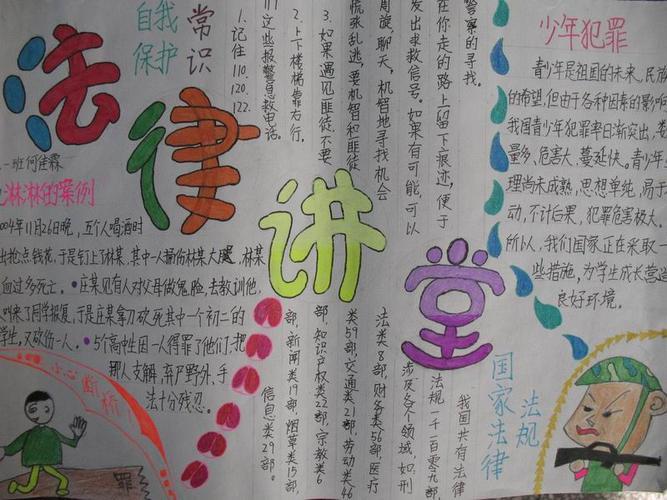 法律讲堂
自我
保护
常识
1.记住110.120.122.
111这些报警急救电话。
2.上下楼梯靠右行。
3.如果遇见匪徒不要
慌张乱逃,要机智和匪徒
周旋,聊天,机智地寻找机会
发出求救信号。如果有可能,可以
在你走的路上留下痕迹,便于
警察的寻找。
少年犯罪
青少年是祖国的未来,民族
的希望,但由于各种因素的影响
我国青少年犯罪率日渐突出,
量多,危害大,蔓延快。青少年
理尚未成熟,思想单纯,易于
动,不计后果,犯罪危害极大。
所以,我们国家正在采取一
些措施,为学生成长营造
良好环境。
一班何佳霖
淋淋的案例
004年11月26日晚,五个人喝酒时
出抢点钱花,于是钉上了林某,其中一人捅伤林某大腿,林某
血过多死亡。庄某见有人对父母做鬼脸,去教训他,
叫来了同学报复,于是庄某拿刀砍死其中一个初二的
学生,又砍伤一人。5个高中生因一人得罪了他们,把
那人支解,弃尸野外,手
法十分残忍。
小心断桥!
罪
国家法律
法规
我国共有法律
法规一千一百零九部,
涉及各个领域,如刑
法类8部,财务类56部,医疗
类59部,交通类21部,劳动类46
部,知识产权类22部,宗教类6
部,新闻类19部,烟草类15部,
信息类29部。